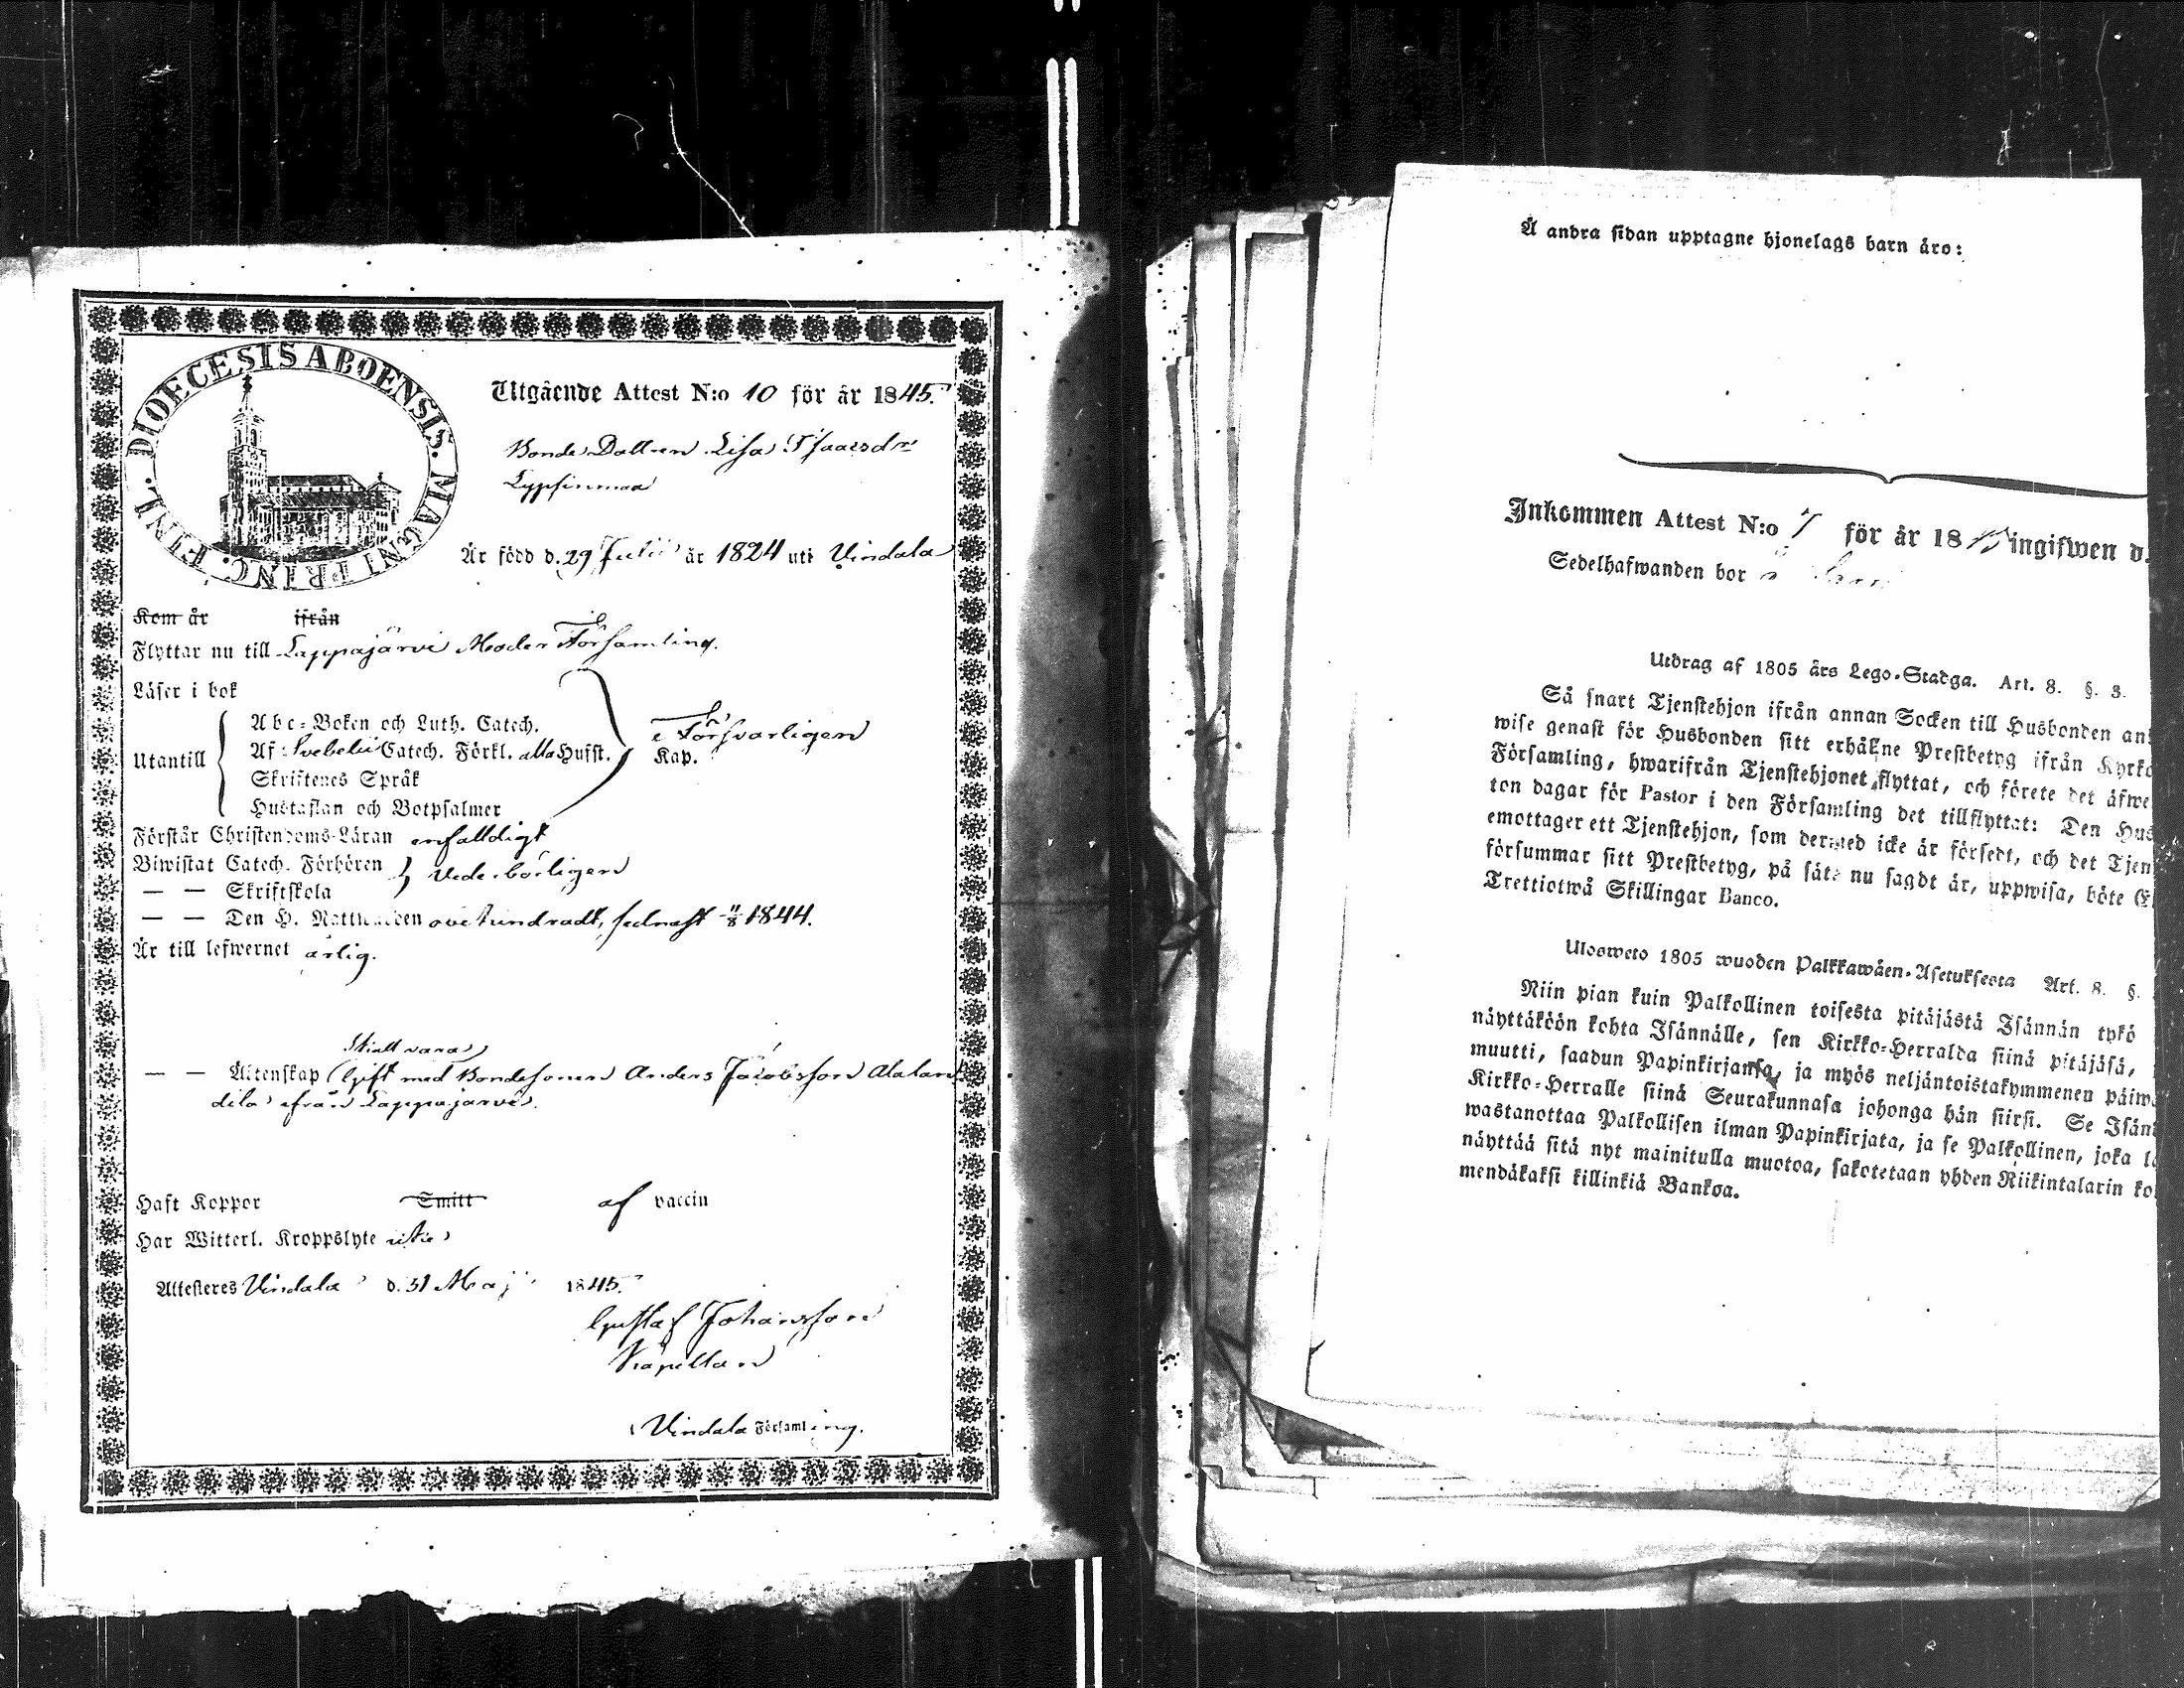 DIOECESIS ABOENSIS. MAGNI PRINC. FINL.
Utgående Attest N:o 10 för år 1845.
Bonde Dottren Lisa Isaacsdr
Är född d. 29 Julii år 1824 uti Vindala
Kom år ifrån
Flyttar nu till Lappajärvi Moder Församling.
Läser i bok
Utantill
Abc-Boken och Luth. Catech.
Af Svebelii Catech. Förkl. alla Hufst.
Försvarligen
Kap.
Skriftenes Språk
Hustaflan och Botpsalmer
Förstår Christendoms-Läran enfalldigt
Biwistat Catech. Förhören
vederbörligen
— — Skriftskola
— — Den H. Nattwarden oförhindradt, sednast 11/8 1844.
Är till lefwernet ärlig.
— — Äktenskap Gift med Bondesonen Anders Jacobsson
ifrån Lappajärvi.
Haft Koppor Smitt af vaccin
Har Witterl. Kroppslyte
Attesteres Vindala d. 31 Maj 1845.
Gustaf Johansson
Kapellan
i Vindala Församling.
Å andra sidan upptagne hjonelags barn äro:
Inkommen Attest N:o 7 för år 1845 ingifwen d.
Sedelhafwanden bor
Utdrag af 1805 års Lego-Stadga. Art. 8. §. 3.
Så snart Tjenstehjon ifrån annan Socken till Husbonden an
wise genast för Husbonden sitt erhållne Prestbetyg ifrån Kyrko
Församling, hwarifrån Tjenstehjonet flyttat, och förete det äfwe
ton dagar för Pastor i den Församling det tillflyttat: Den Hus
emottager ett Tjenstehjon, som dermed icke är försedt, och det Tjen
försummar sitt Prestbetyg, på sätt nu sagdt är, uppwisa, böte E
Trettiotwå Skillingar Banco.
Ulosweto 1805 wuoden Palkkawäen-Asetuksesta Art. 8. §.
Niin pian kuin Palkollinen toisesta pitäjästä Isännän tykö
näyttäköön kohta Isännälle, sen Kirkko-Herralda siinä pitäjäsä,
muutti, saadun Papinkirjansa, ja myös neljäntoistakymmenen päiwä
Kirkko-Herralle siinä Seurakunnasa johonga hän siirsi. Se Isän
wastanottaa Palkollisen ilman Papinkirjata, ja se Palkollinen, joka l
näyttää sitä nyt mainitulla muotoa, sakotetaan yhden Riikintalarin ko
mendäkaksi killinkiä Bankoa.